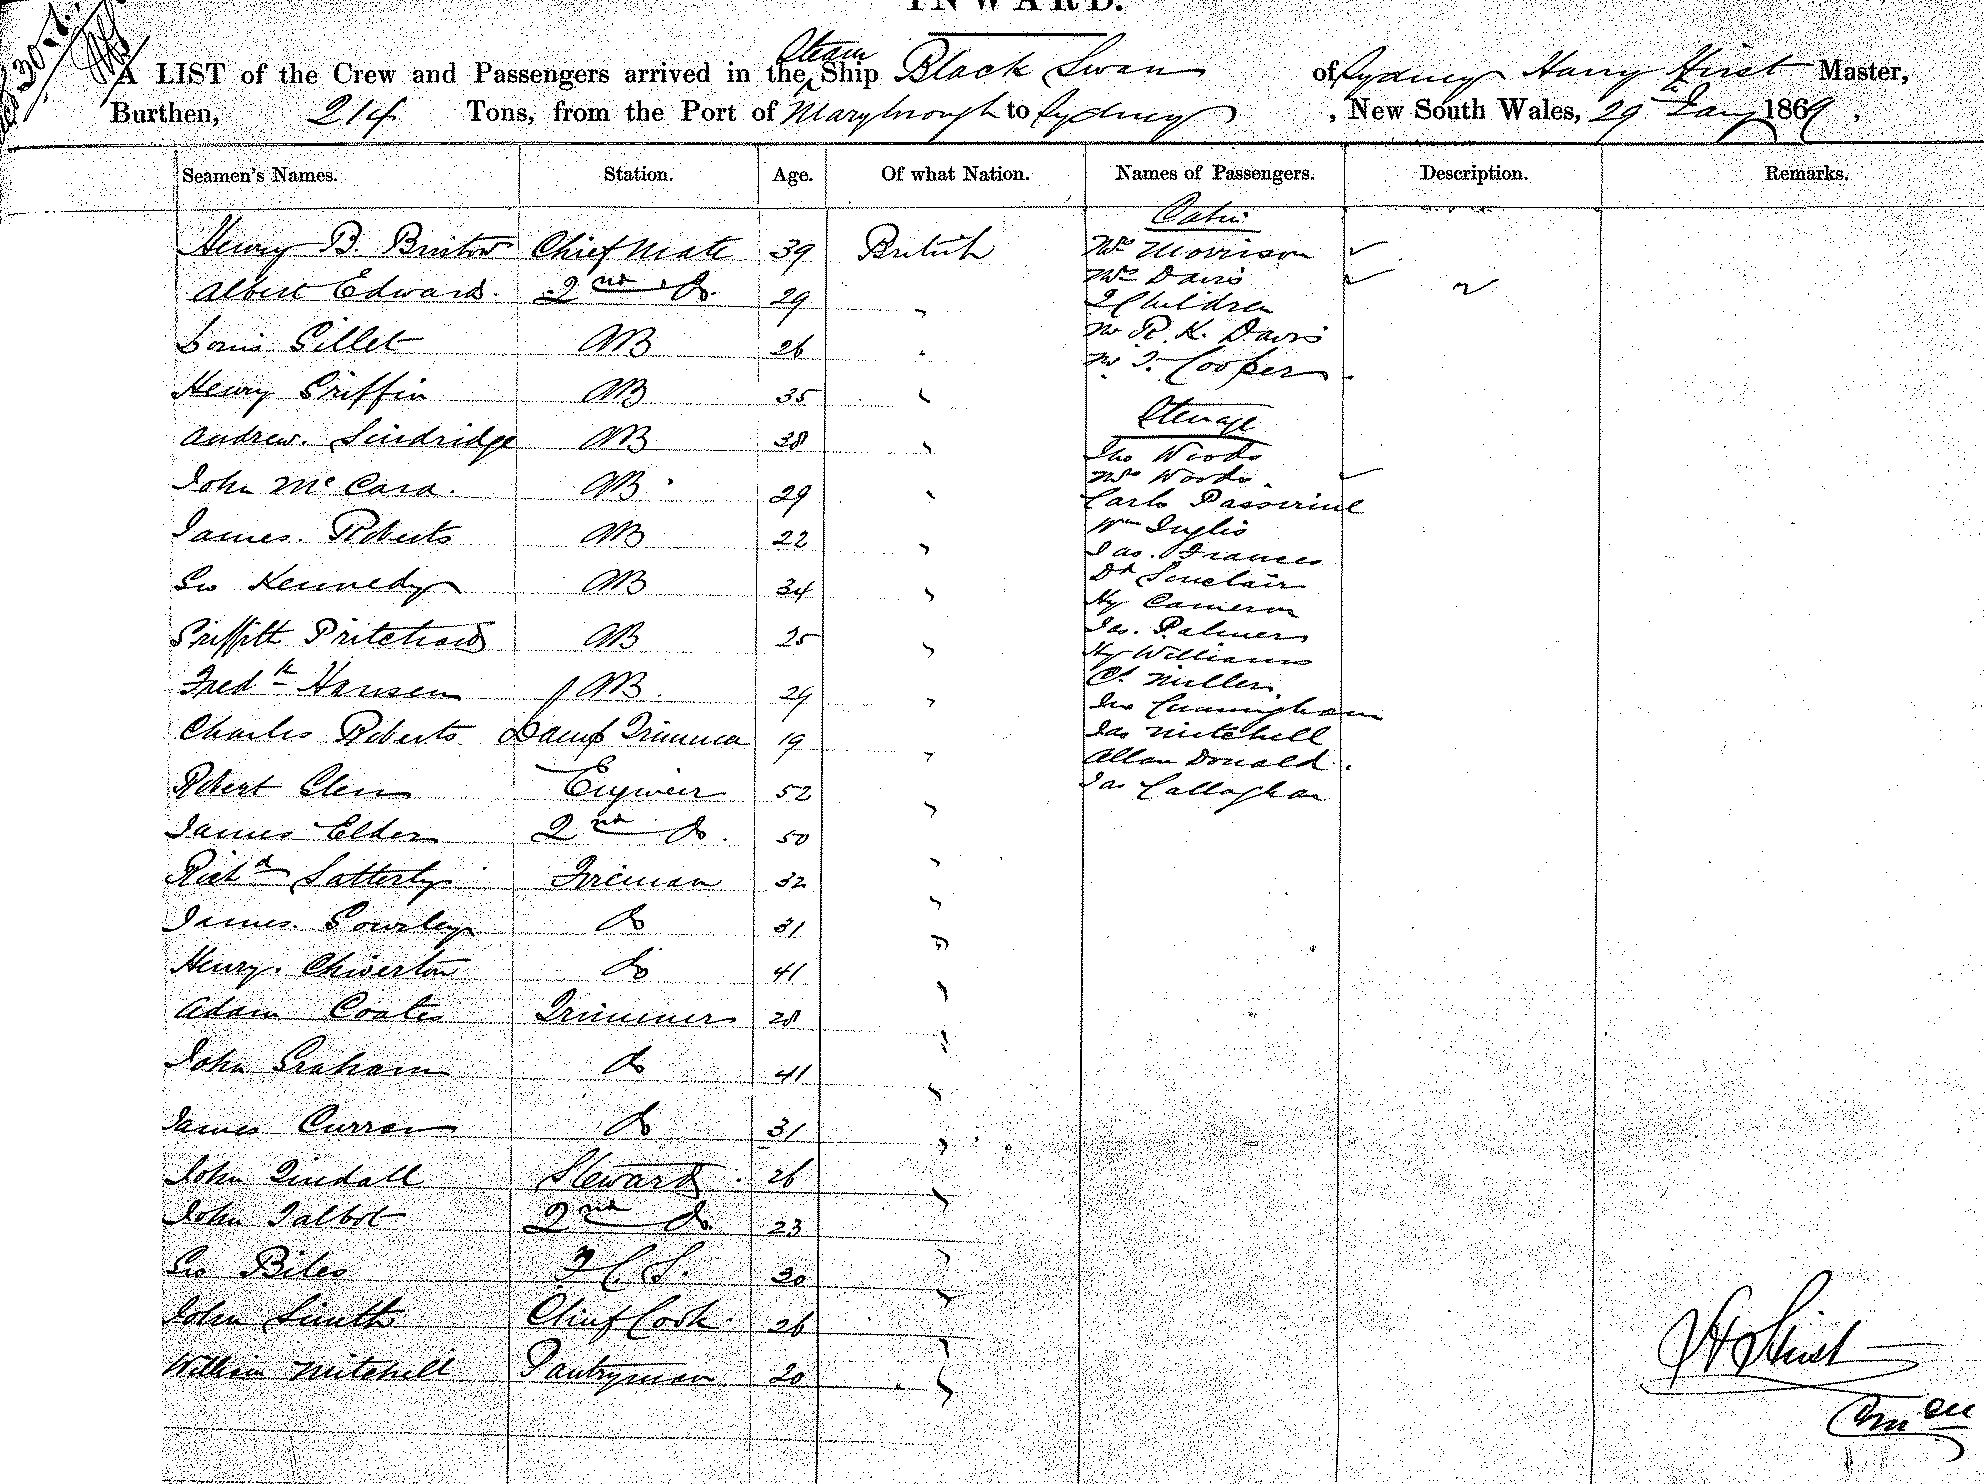 INWARD.
A LIST of the Crew and Passengers arrived in the Steam Ship Black Swan of Sydney Harry Hirst Master,
Burthen, 214 Tons, from the Port of Maryborough to Sydney, New South Wales, 29th Jany 1869,
Seamen's Names. Station. Age. Of what Nation. Names of Passengers. Description. Remarks.
Cabin
Henry B. Bristow Chief Mate 39 British Mrs Morrison
Albert Edward. 2nd do. 29 " Mrs Davis
2 Children
Louis Gillet AB 26 " Mr R. K. Davis
Mr T. Cooper
Henry Griffin AB 35 "
Steerage
Andrew. Sindridge AB 38 " Jno Woods
John McCara. AB 29 " Mrs Woods.
Carlo Passerine
James. Roberts AB 22 " Wm Inglis
Jas. Frances
Geo Kennedy AB 34 " Dd Sinclair
Hy Cameron
Griffith Pritchard AB 25 " Jas. Palmer
Hy Williams
Fredk Hansen AB. 24 " C. Miller.
Jno Cunningham
Charles Roberts Lamp Trimmer 19 " Jas Mitchell
Allan Donald.
Robert Glen Engineer 52 " Jas Callaghan
James Elder 2nd do. 50 "
Richd Satterly Fireman 32 "
James. Gourley do 31 "
Henry. Chiverton do 41 "
Adam Coates Trimmer 28 "
John Graham do 41 "
James Curran do 31 "
John Tindall Steward. 26 "
John Talbot 2nd do 23 "
Geo Biles F. C. S. 30 "
John Smith Chief Cook. 26 "
William Mitchell Pantryman 20 "
H Hirst